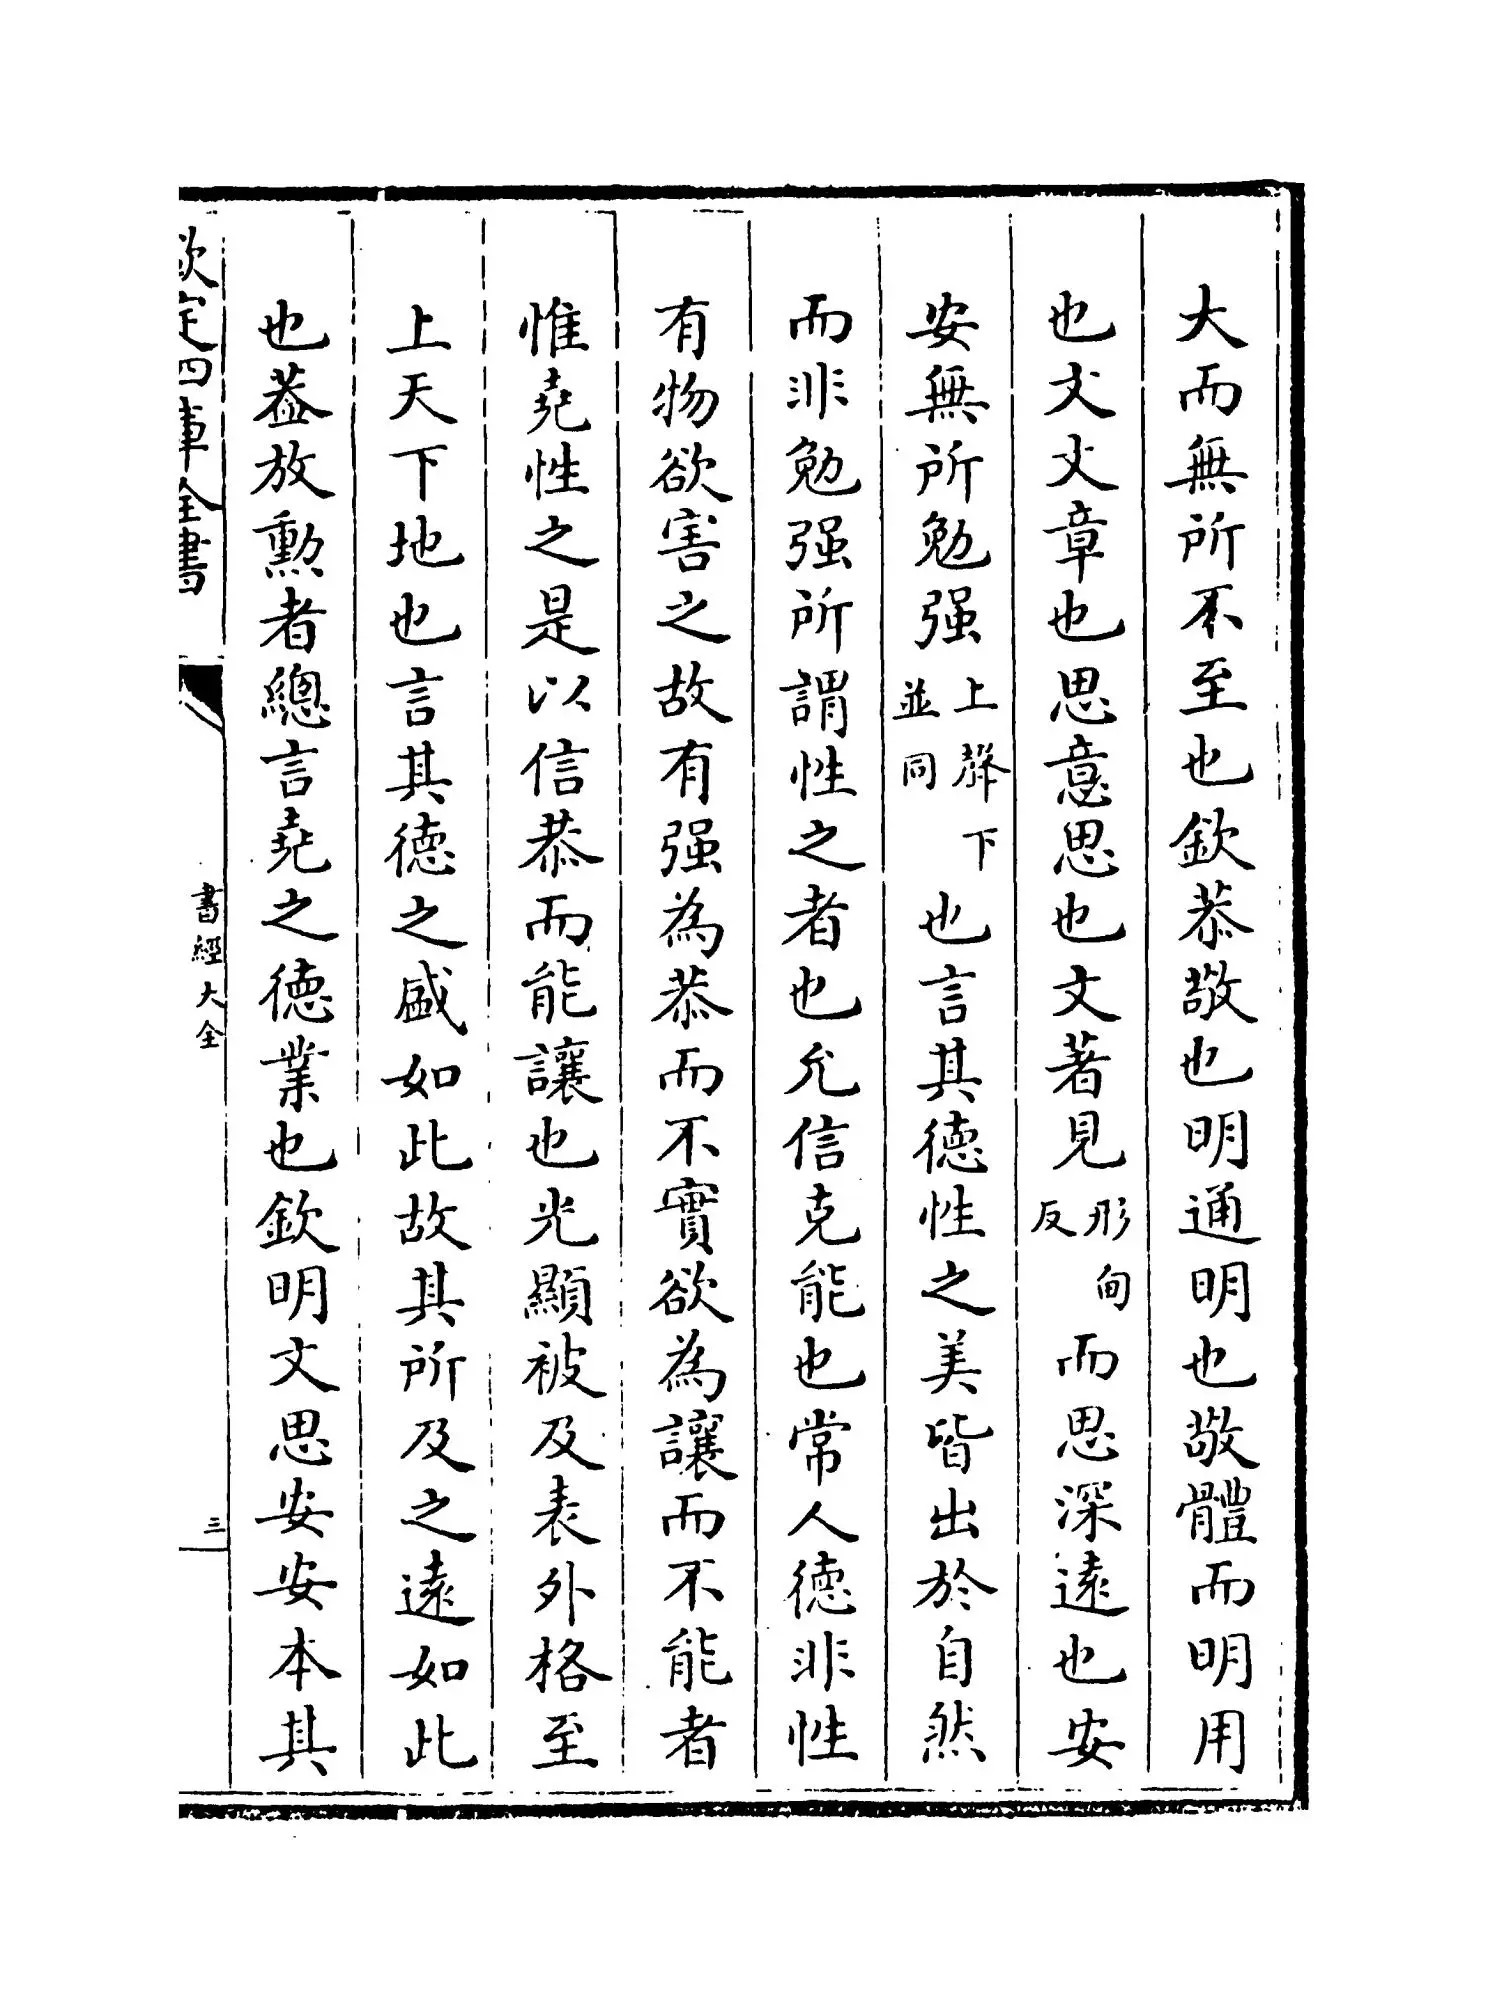 大而無所不至也欽恭敬也明通明也敬體而明用
也文文章也思意思也文著見形甸反而思深遠也安
安無所勉强上聲下並同也言其德性之美皆出於自然
而非勉强所謂性之者也允信克能也常人德非性
有物欲害之故有强為恭而不實欲為讓而不能者
惟堯性之是以信恭而能讓也光顯被及表外格至
上天下地也言其德之盛如此故其所及之遠如此
也葢放勲者總言堯之德業也欽明文思安安本其
欽定四庫全書
書經大全
三